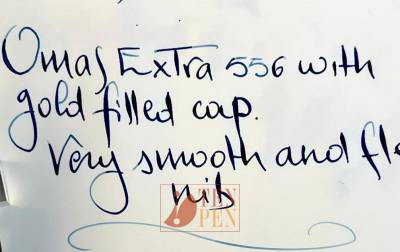 Omas Extra 556 with
gold filled cap.
Very smooth and fle
nib
TEN
PEN